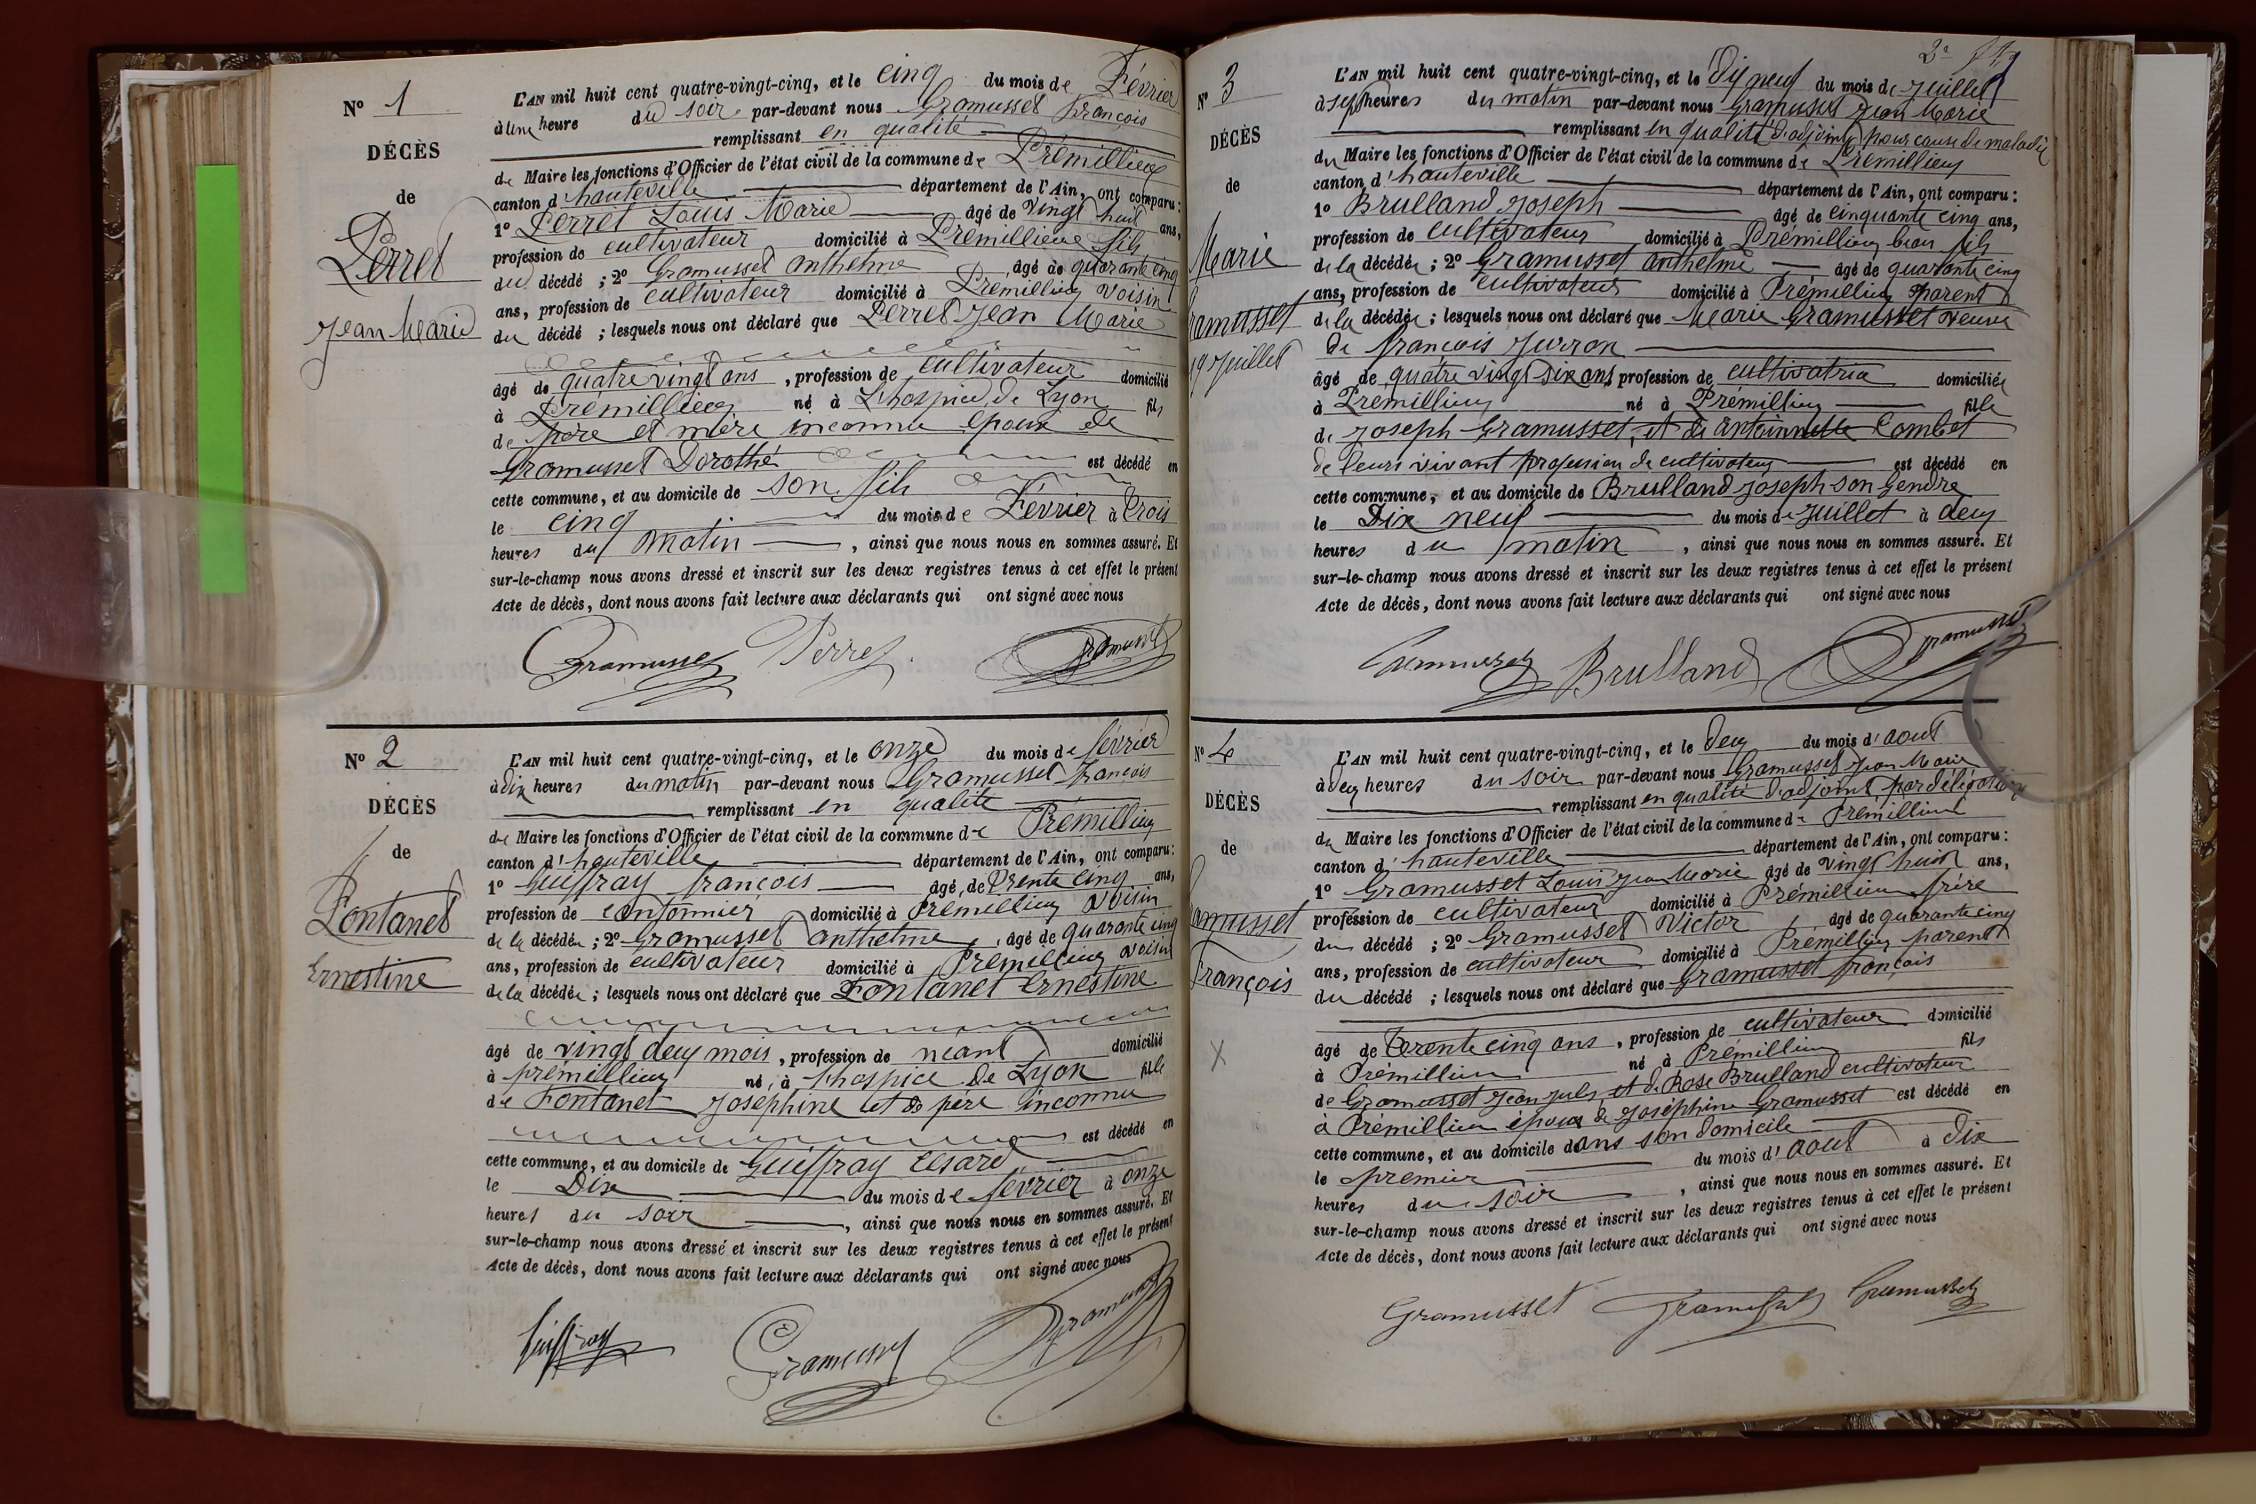 N° 1
DÉCÈS
de
Perret
Jean Marie
L'AN mil huit cent quatre-vingt-cinq, et le cinq du mois de Février
à une heure du soir par-devant nous Gramusset François
remplissant en qualité
de Maire les fonctions d'Officier de l'état civil de la commune de Prémillieu
canton d'hauteville département de l'Ain, ont comparu :
1° Perret Louis Marie âgé de vingt huit ans,
profession de cultivateur domicilié à Prémillieu fils
du décédé ; 2° Gramusset anthelme , âgé de quarante cinq
ans, profession de cultivateur domicilié à Prémillieu voisin
du décédé ; lesquels nous ont déclaré que Perret Jean Marie
âgé de quatre vingt ans , profession de cultivateur domicilié
à Prémillieu né à L'hospice de Lyon fils
de père et mère inconnu époux de
Gramusset Dorothé est décédé en
cette commune, et au domicile de son fils
le cinq du mois de Février à trois
heures du matin , ainsi que nous nous en sommes assuré. Et
sur-le-champ nous avons dressé et inscrit sur les deux registres tenus à cet effet le présent
Acte de décès, dont nous avons fait lecture aux déclarants qui ont signé avec nous
Gramusset Perret Gramusset
N° 2
DÉCÈS
de
Fontanet
Ernestine
L'AN mil huit cent quatre-vingt-cinq, et le onze du mois de février
à dix heures du matin par-devant nous Gramusset François
remplissant en qualité
de Maire les fonctions d'Officier de l'état civil de la commune de Prémillieu
canton d'hauteville département de l'Ain, ont comparu :
1° Guiffray françois âgé de trente cinq ans,
profession de cantonnier domicilié à Prémillieu voisin
de la décédée ; 2° Gramusset anthelme , âgé de quarante cinq
ans, profession de cultivateur domicilié à Prémillieu voisin
de la décédée ; lesquels nous ont déclaré que Fontanet Ernestine
âgé de vingt deux mois , profession de néant domicilié
à prémillieu né à l'hospice de Lyon fille
de Fontanet Joséphine et de père inconnu
est décédé en
cette commune, et au domicile de Guiffray Cesard
le Dix du mois de février à onze
heures du soir , ainsi que nous nous en sommes assuré. Et
sur-le-champ nous avons dressé et inscrit sur les deux registres tenus à cet effet le présent
Acte de décès, dont nous avons fait lecture aux déclarants qui ont signé avec nous
Guiffray Gramusset Gramusset
N° 3
DÉCÈS
de
Marie
ramusset
19 Juillet
L'AN mil huit cent quatre-vingt-cinq, et le Dix neuf du mois de Juillet
à sept heures du matin par-devant nous Gramusset Jean Marie
remplissant en qualité d'adjoint pour cause de maladie
du Maire les fonctions d'Officier de l'état civil de la commune de Prémillieu
canton d'hauteville département de l'Ain, ont comparu :
1° Brulland Joseph âgé de cinquante cinq ans,
profession de cultivateur domicilié à Prémillieu beau fils
de la décédée ; 2° Gramusset anthelme âgé de quarante cinq
ans, profession de cultivateur domicilié à Prémillieu parent
de la décédée ; lesquels nous ont déclaré que Marie Gramusset veuve
de françois Jurron
âgé de quatre vingt dix ans profession de cultivatrice domiciliée
à Prémillieu né à Prémillieu fille
de Joseph Gramusset, et de antoinnette Combet
de leurs vivant profession de cultivateur est décédé en
cette commune, et au domicile de Brulland Joseph son Gendre
le Dix neuf du mois de Juillet à deux
heures du matin , ainsi que nous nous en sommes assuré. Et
sur-le-champ nous avons dressé et inscrit sur les deux registres tenus à cet effet le présent
Acte de décès, dont nous avons fait lecture aux déclarants qui ont signé avec nous
Gramusset Brulland Gramusset
N° 4
DÉCÈS
de
amusset
François
X
L'AN mil huit cent quatre-vingt-cinq, et le deux du mois d'aout
à deux heures du soir par-devant nous Gramusset Jean Marie
remplissant en qualité d'adjoint par délégation
du Maire les fonctions d'Officier de l'état civil de la commune de Prémillieu
canton d'hauteville département de l'Ain, ont comparu :
1° Gramusset Louis Jean Marie âgé de vingt huit ans,
profession de cultivateur domicilié à Prémillieu frère
du décédé ; 2° Gramusset Victor âgé de quarante cinq
ans, profession de cultivateur domicilié à Prémillieu parent
du décédé ; lesquels nous ont déclaré que Gramusset françois
âgé de trente cinq ans , profession de cultivateur domicilié
à Prémillieu né à Prémillieu fils
de Gramusset Jean Juls et de Rose Brulland cultivateur
à Prémillieu époux de Joséphine Gramusset est décédé en
cette commune, et au domicile dans son domicile
le premier du mois d'aout à dix
heures du soir , ainsi que nous nous en sommes assuré. Et
sur-le-champ nous avons dressé et inscrit sur les deux registres tenus à cet effet le présent
Acte de décès, dont nous avons fait lecture aux déclarants qui ont signé avec nous
Gramusset Gramusset Gramusset